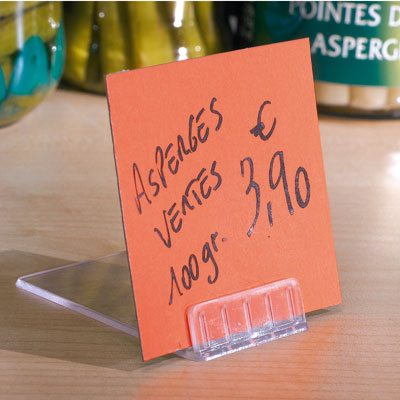 POINTES D
ASPERG
ASPERGES
VENTES
100gr.
€
3,90